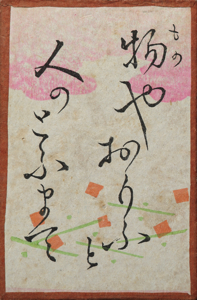 もの
物やおもふと
人のとふまて